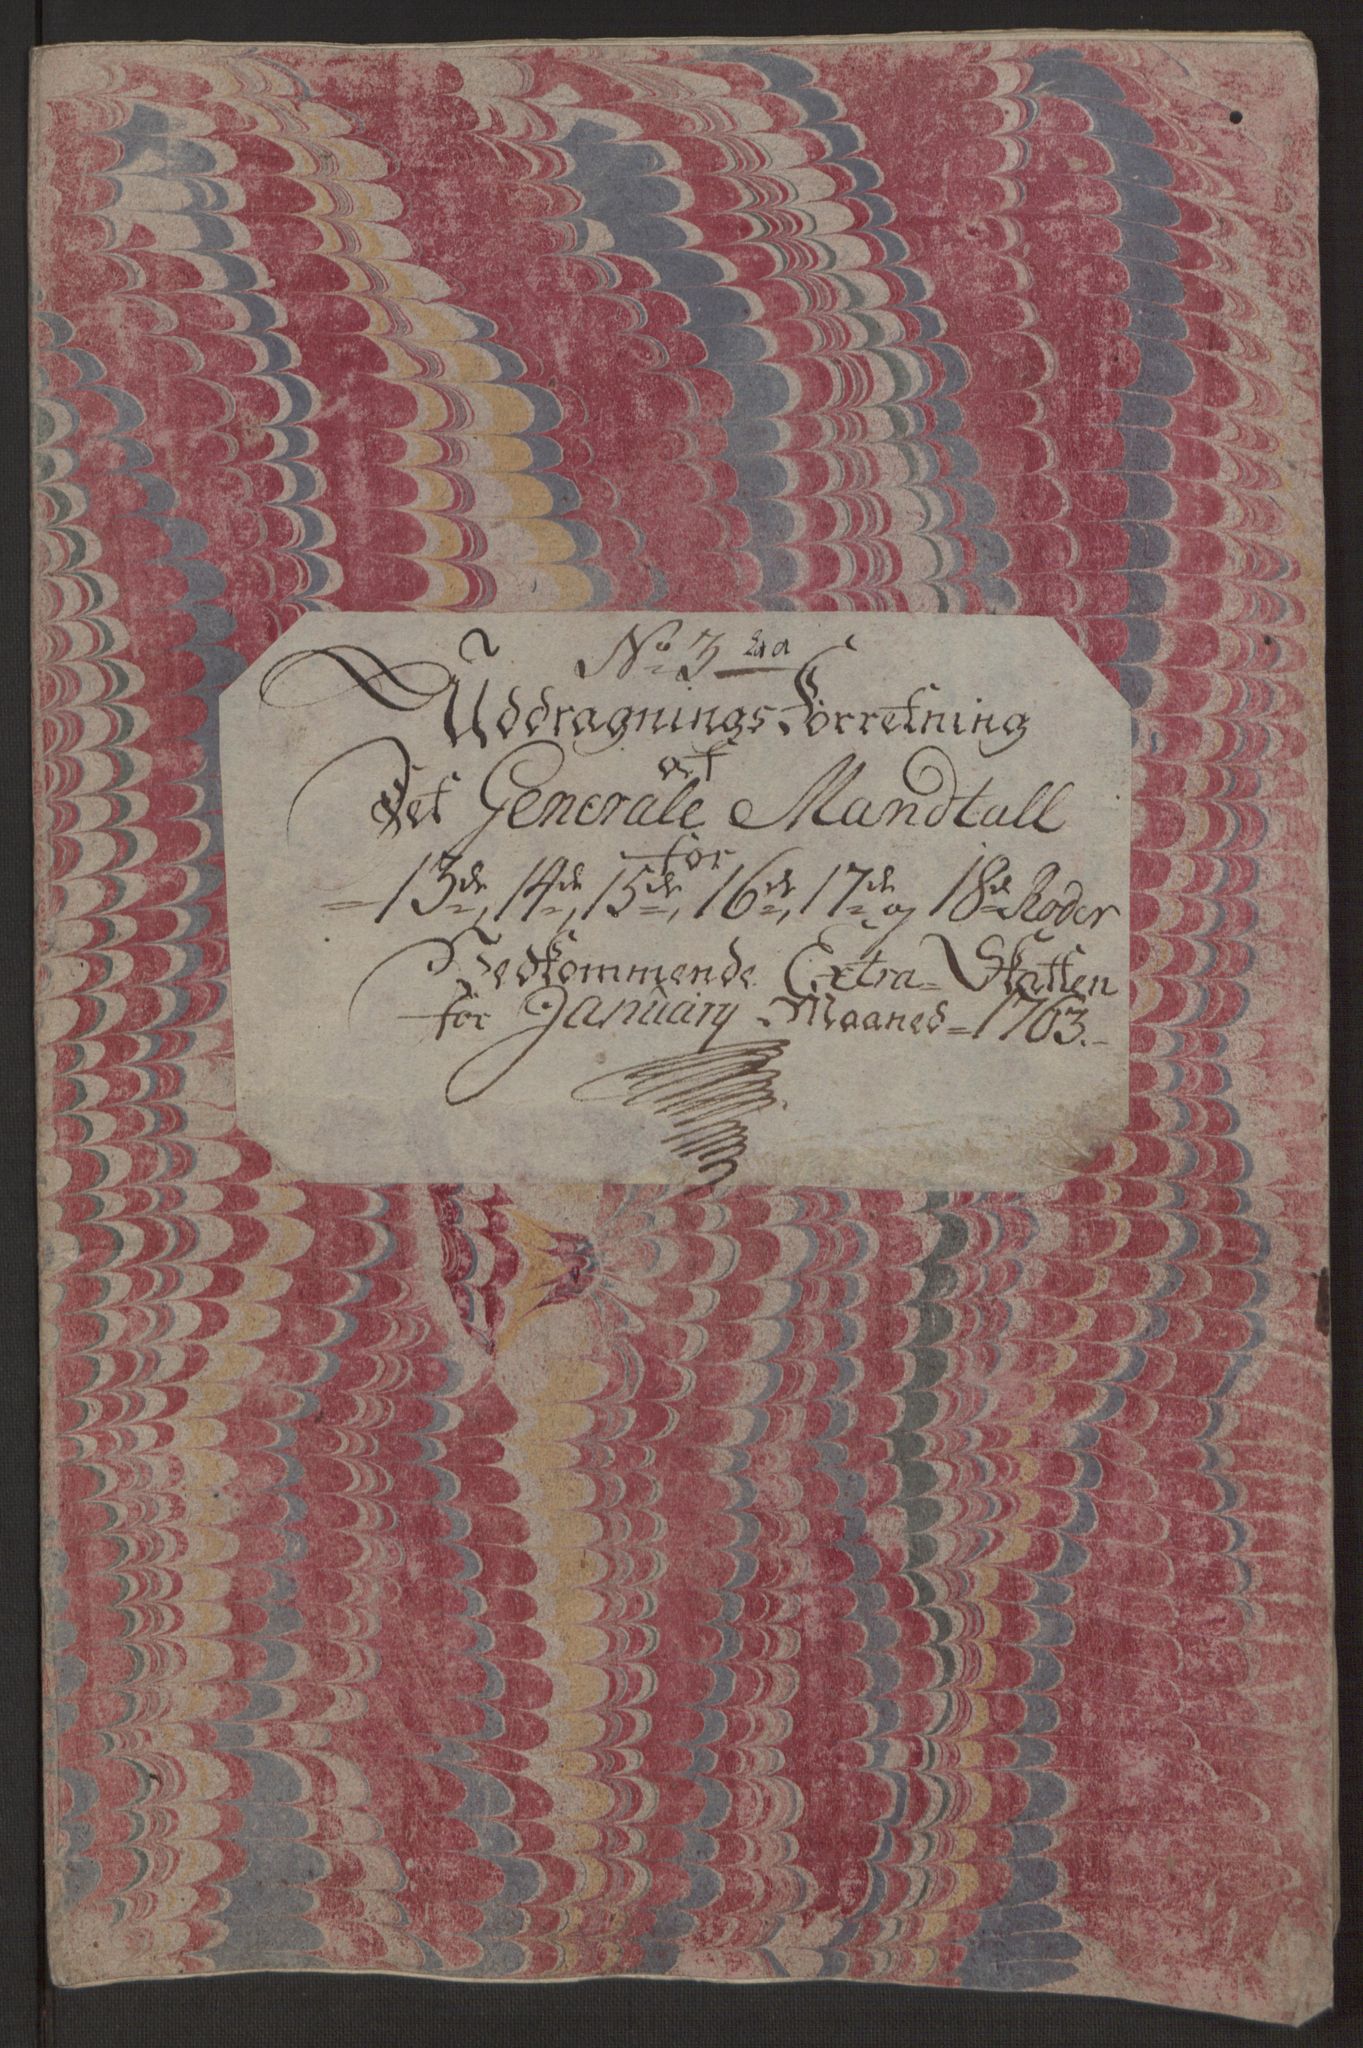 No 3 
Uddragnings Forretning
af
Det Generale Mandtall
for
13de, 14de, 15de, 16de, 17de og 18de Roder
Vedkommende Extra-Skatten
for January Maaned 1763.